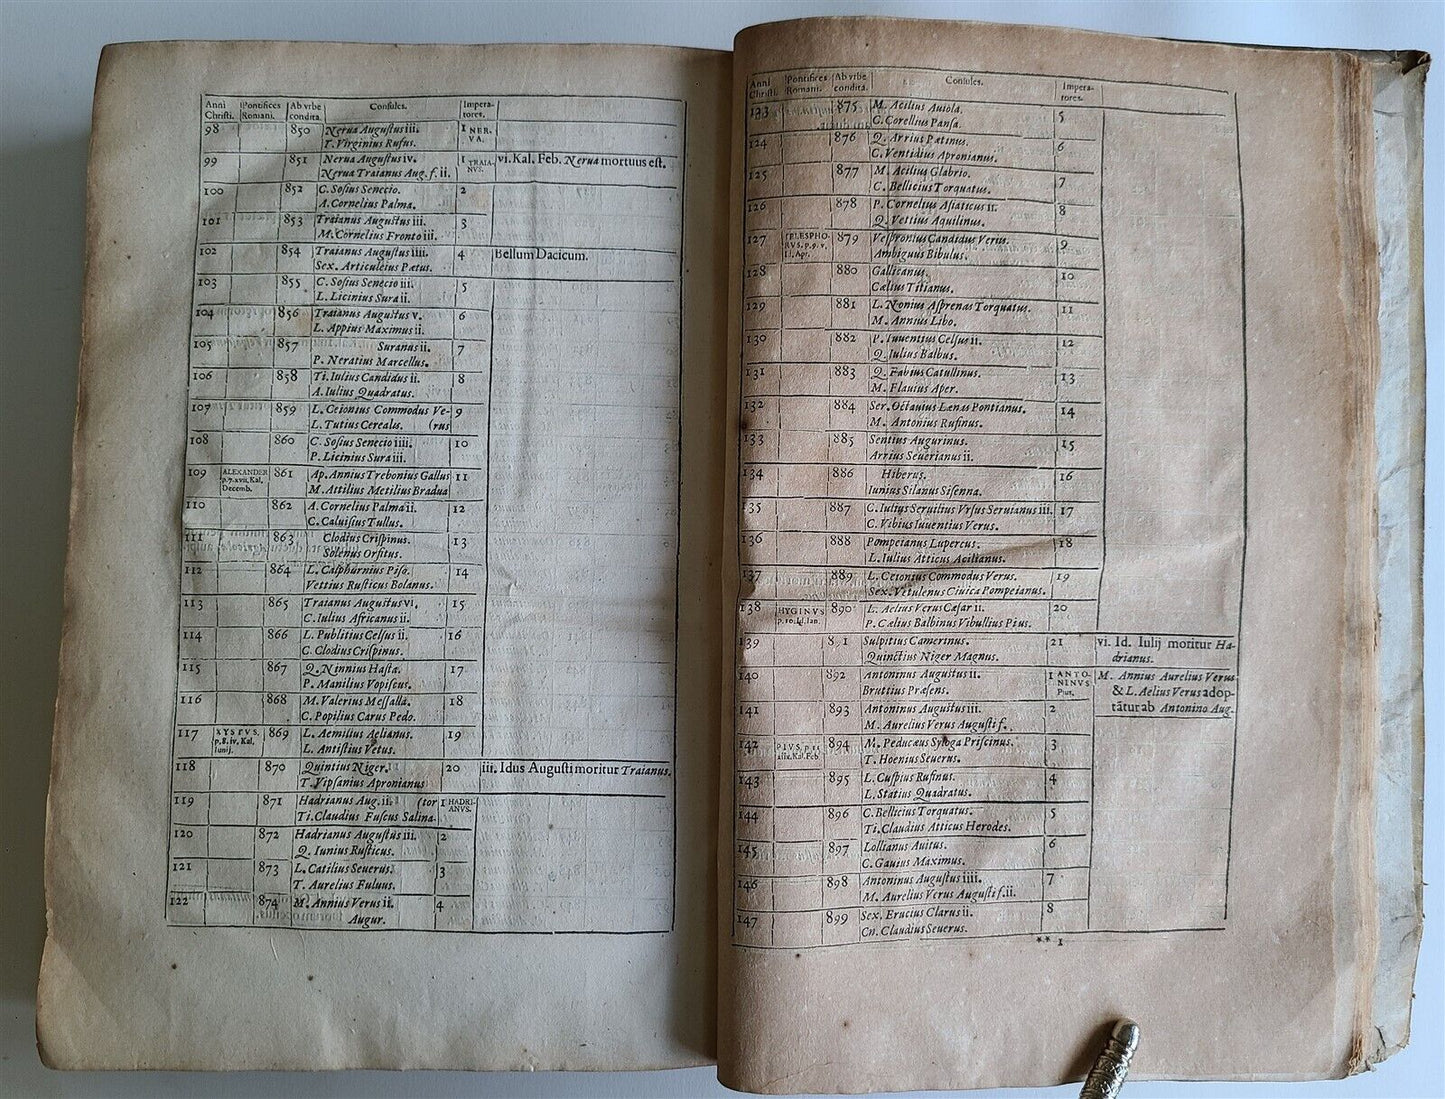 Anni Christi. Pontifices Romani. Ab vrbe condita. Conſules. Imperatores.
98 850 Nerua Auguſtus iii. I NERVA.
T. Virginius Rufus.
99 851 Nerua Auguſtus iv. I TRAIANVS. vi. Kal. Feb. Nerua mortuus eſt.
Nerua Traianus Aug. f. ii.
100 852 C. Soſius Senecio. 2
A. Cornelius Palma.
101 853 Traianus Auguſtus iii. 3
M. Cornelius Fronto iii.
102 854 Traianus Auguſtus iiii. 4 Bellum Dacicum.
Sex. Articuleius Pætus.
103 855 C. Soſius Senecio iii. 5
L. Licinius Sura ii.
104 856 Traianus Auguſtus v. 6
L. Appius Maximus ii.
105 857 Suranus ii. 7
P. Neratius Marcellus.
106 858 Ti. Iulius Candidus ii. 8
A. Iulius Quadratus.
107 859 L. Ceionius Commodus Ve- 9
L. Tutius Cerealis. (rus
108 860 C. Soſius Senecio iiii. 10
P. Licinius Sura iii.
109 ALEXANDER p. 7. xvii. Kal. Decemb. 861 Ap. Annius Trebonius Gallus 11
M. Attilius Metilius Bradua
110 862 A. Cornelius Palma ii. 12
C. Caluiſius Tullus.
111 863 Clodius Criſpinus. 13
Solenus Orfitus.
112 864 L. Calphurnius Piſo. 14
Vettius Ruſticus Bolanus.
113 865 Traianus Auguſtus vi. 15
C. Iulius Africanus ii.
114 866 L. Publitius Celſus ii. 16
C. Clodius Criſpinus.
115 867 Q. Ninnius Haſta. 17
P. Manilius Vopiſcus.
116 868 M. Valerius Meſſalla. 18
C. Popilius Carus Pedo.
117 XYSTVS. p. 8. iv. Kal. Iunij. 869 L. Aemilius Aelianus. 19
L. Antiſtius Vetus.
118 870 Quintius Niger. 20 iii. Idus Auguſti moritur Traianus.
T. Vipſanius Apronianus
119 871 Hadrianus Aug. ii. (tor I HADRIANVS.
Ti. Claudius Fuſcus Salina-
120 872 Hadrianus Auguſtus iii. 2
Q. Iunius Ruſticus.
121 873 L. Catilius Seuerus. 3
T. Aurelius Fuluus.
122 874 M. Annius Verus ii. 4
Augur.
Anni Christi. Pontifices Romani. Ab vrbe condita. Conſules. Imperatores.
875 M. Acilius Auiola. 5
C. Corellius Panſa.
124 876 Q. Arrius Pætinus. 6
C. Ventidius Apronianus.
125 877 M. Acilius Glabrio. 7
C. Bellicius Torquatus.
126 878 P. Cornelius Aſiaticus ii. 8
Q. Vettius Aquilinus.
127 TELESPHORVS. p. 9. v. Apr. 879 Veſpronius Candidus Verus. 9
Ambiguus Bibulus.
128 880 Gallicanus. 10
Cælius Titianus.
129 881 L. Nonius Aſprenas Torquatus. 11
M. Annius Libo.
130 882 P. Iuuentius Celſus ii. 12
Q. Iulius Balbus.
131 883 Q. Fabius Catullinus. 13
M. Flauius Aper.
132 884 Ser. Octauius Lænas Pontianus. 14
M. Antonius Rufinus.
133 885 Sentius Augurinus. 15
Arrius Seuerianus ii.
134 886 Hiberus. 16
Iunius Silanus Siſenna.
135 887 C. Iulius Seruilius Vrſus Seruianus iii. 17
C. Vibius Iuuentius Verus.
136 888 Pompeianus Lupercus. 18
L. Iulius Atticus Acilianus.
137 889 L. Ceionius Commodus Verus. 19
Sex. Vetulenus Ciuica Pompeianus.
138 HYGINVS p. 10. Id. Ian. 890 L. Aelius Verus Cæſar ii. 20
P. Cælius Balbinus Vibullius Pius.
139 8 1 Sulpitius Camerinus. 21 vi. Id. Iulij moritur Ha-
Quinctius Niger Magnus. drianus.
140 892 Antoninus Auguſtus ii. I ANTONINVS Pius. M. Annius Aurelius Verus
Bruttius Præſens. & L. Aelius Verus adop-
141 893 Antoninus Auguſtus iii. 2 tātur ab Antonino Aug.
M. Aurelius Verus Auguſti f.
142 PIVS. p. Kal. Feb. 894 M. Peducæus Syloga Priſcinus. 3
T. Hoenius Seuerus.
143 895 L. Cuſpius Rufinus. 4
L. Statius Quadratus.
144 896 C. Bellicius Torquatus. 5
Ti. Claudius Atticus Herodes.
145 897 Lollianus Auitus. 6
C. Gauius Maximus.
146 898 Antoninus Auguſtus iiii. 7
M. Aurelius Verus Auguſti f. ii.
147 899 Sex. Erucius Clarus ii. 8
Cn. Claudius Seuerus.
** I